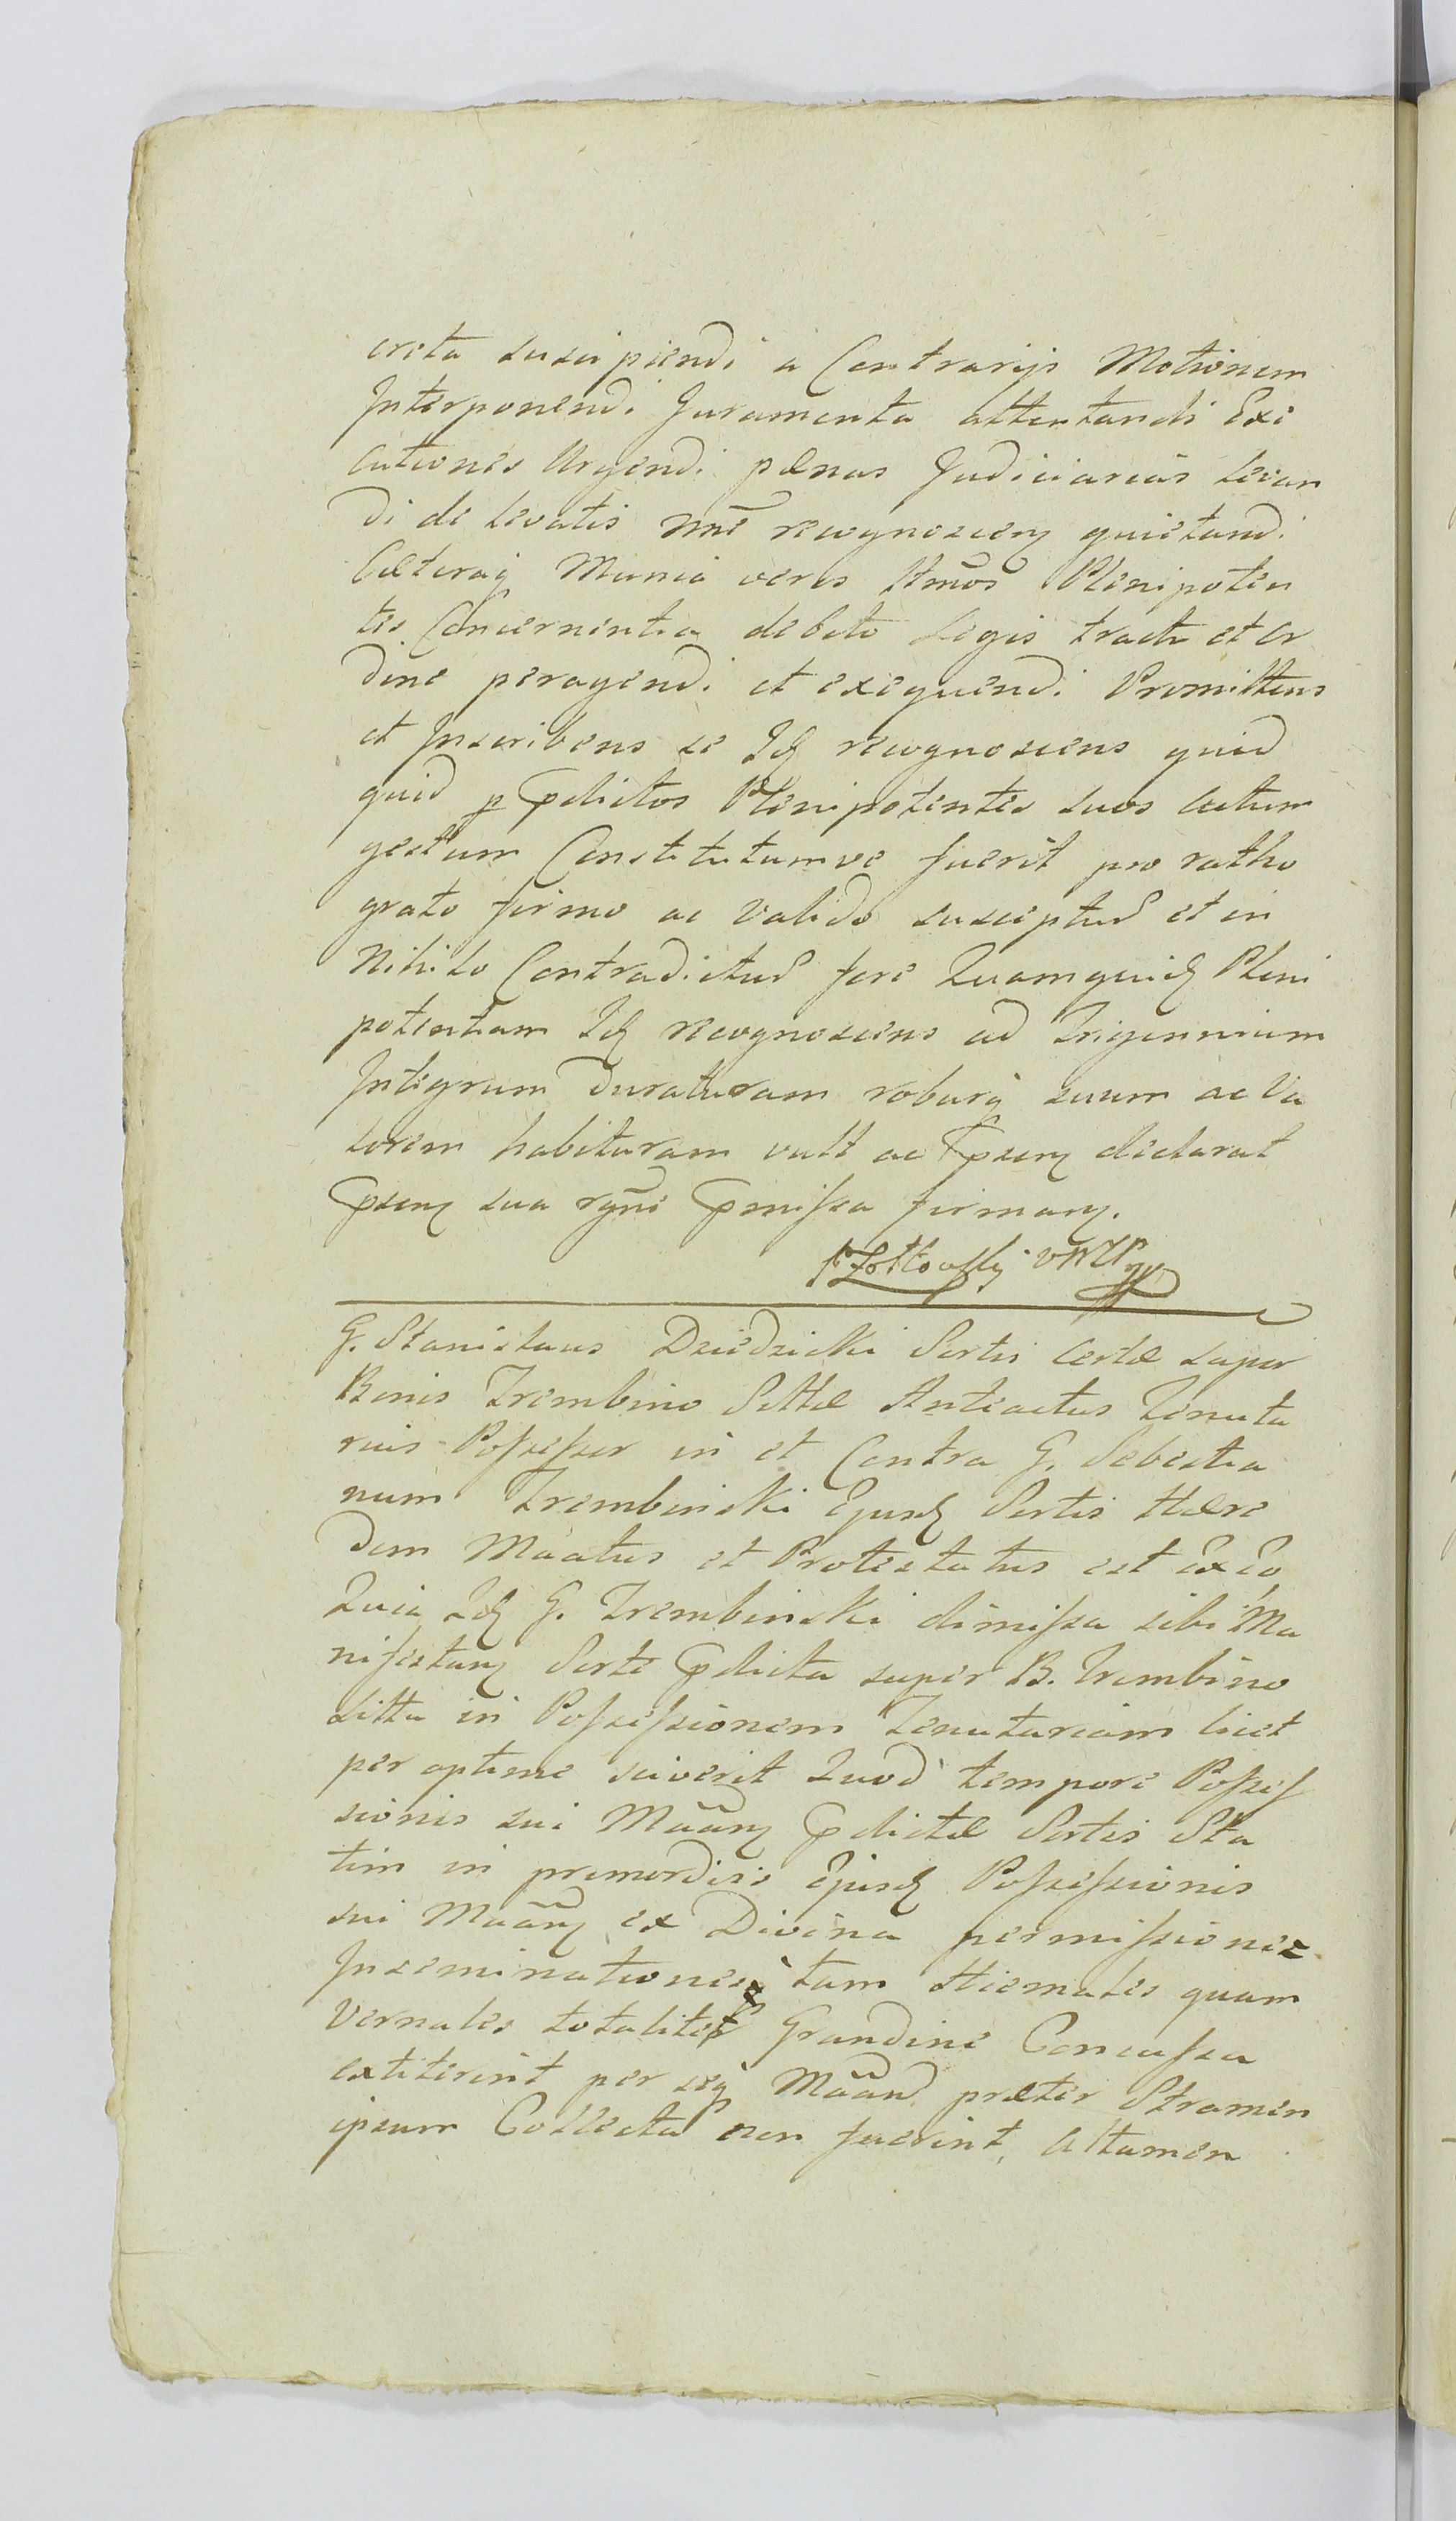 creta suscipiendi a Contrarijs Motionem
Interponendi Juramenta attentandi Exe
cutiones Urgendi pænas Judiciarias levan
di de levatis nm̃e recognoscen quietandi
Cæteraq Munia veros Plenipoten
tes Concernentia debito Legis tractu et or
dine peragendi et exequendi Promittens
et Inscribens se Id recognoscens quid
quid p pdictos Plenipotentes suos actum
gestum Constitutumve fuerit pro ratho
grato firmo ac Valido susceptur et in
Nihilo Contradictur fore Quamquid Pleni
potentiam Id recognoscens ad Trigennium
Integrum Duraturam roburq suum ac Va
lorem habituram vult ac psen declarat
psen sua pmissa firman.
G. Stanislaus Dziedzicki Sortis certæ super
Bonis Trembino Sittæ Anteactus Tenuta
rius Possessor in et Contra G. Sebestia
num Trembinski Ejusd Sortis Hære
dem Māatus et Protestatus est Ex Eo
Quia Id G. Trembinski dimissa sibi Ma
nifestan Sorte pdicta super B. Trembino
Sitta in Possessionem Tenutariam licet
per optime sciverit Quod tempore Posses
sionis sui Māan pdictæ Sortis Sta
tim in primordiis Ejusd Possessionis
sui Māan ex Divina permissione
Inseminationes tam Hiemales quam
Vernales totaliter Grandine Concussa
extiterint per seq Māan præter Stramen
ipsum Collecta non fuerint, Attamen